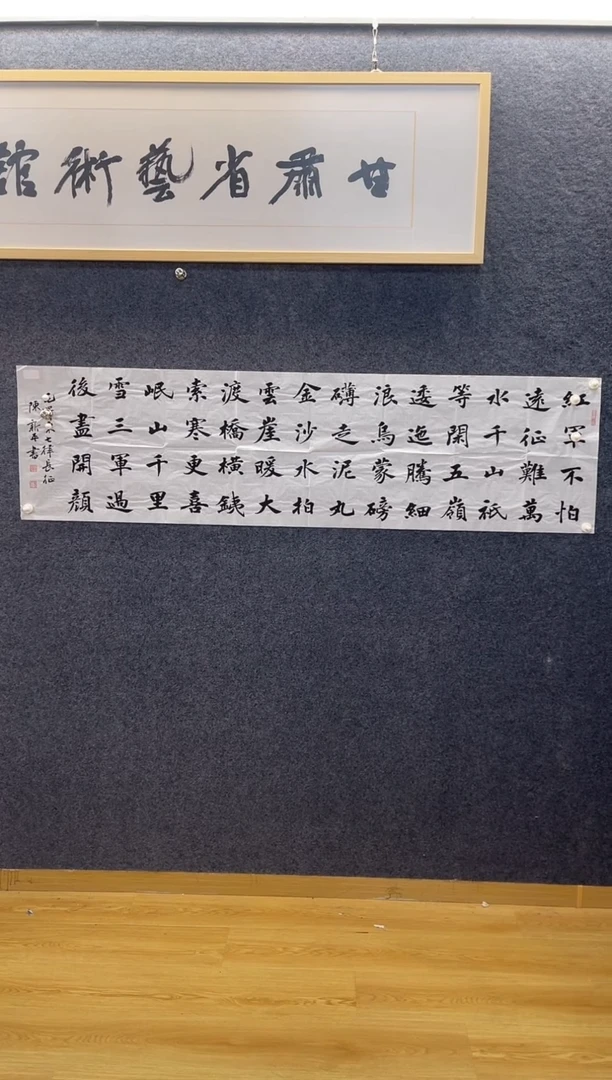 甘肅省藝術館
紅軍不怕
遠征難萬
水千山衹
等閑五嶺
逶迤騰細
浪烏蒙磅
礴走泥丸
金沙水柏
雲崖暖大
渡橋橫鐵
索寒更喜
岷山千里
雪三軍過
後盡開顔
七律長征
陳 平書